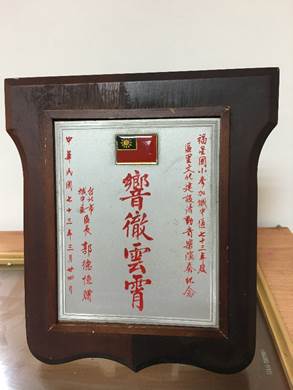 福星國小參加城中區七十三年度
區里文化建設活動音樂演奏紀念
響徹雲霄
台北市
城中區
區長郭德恒贈
中華民國七十三年三月廿四日